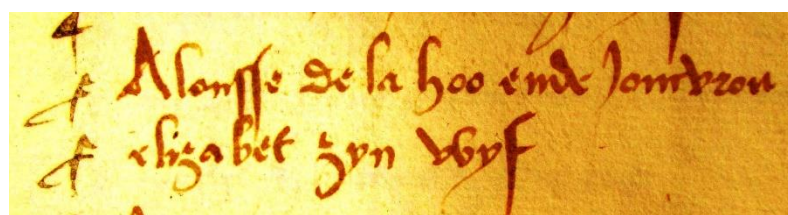 Alonsse de la hoo ende Joncvrou
elizabet zyn wyf